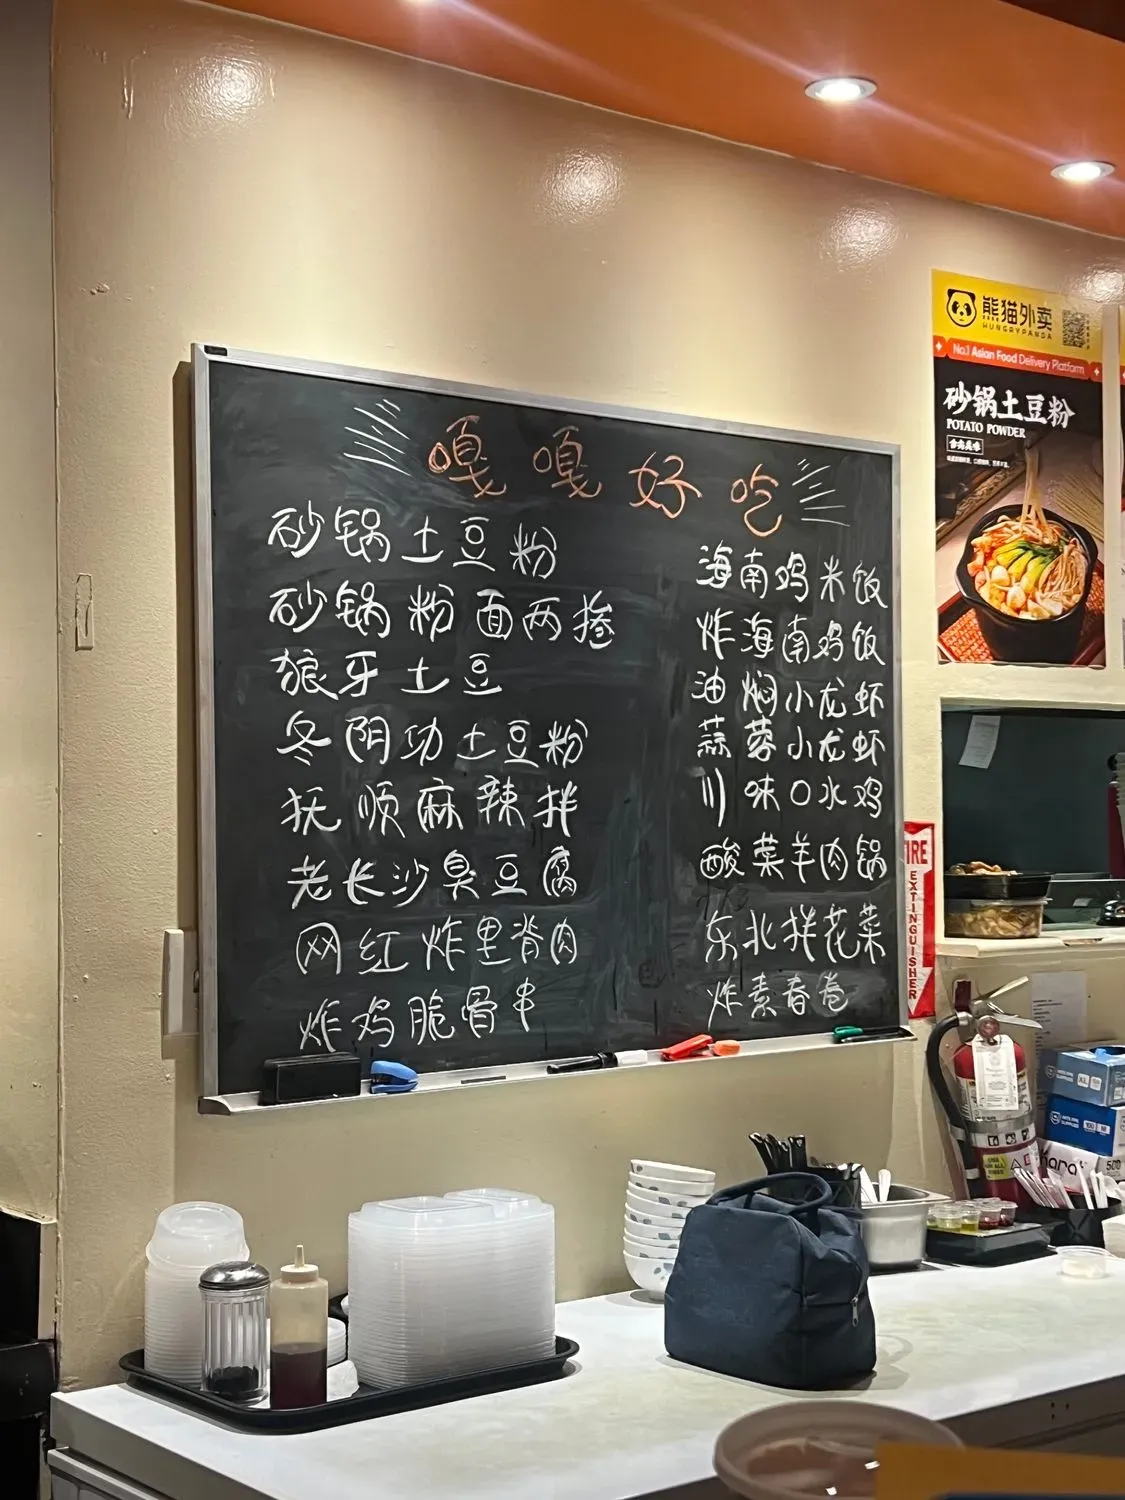 嘎嘎好吃
砂锅土豆粉
砂锅粉面两掺
狼牙土豆
冬阴功土豆粉
抚顺麻辣拌
老长沙臭豆腐
网红炸里脊肉
炸鸡脆骨串
海南鸡米饭
炸海南鸡饭
油焖小龙虾
蒜蓉小龙虾
川味口水鸡
酸菜羊肉锅
东北拌花菜
炸素春卷
熊猫外卖
HUNGRYPANDA
No.1 Asian Food Delivery Platform
砂锅土豆粉
POTATO POWDER
FIRE
EXTINGUISHER